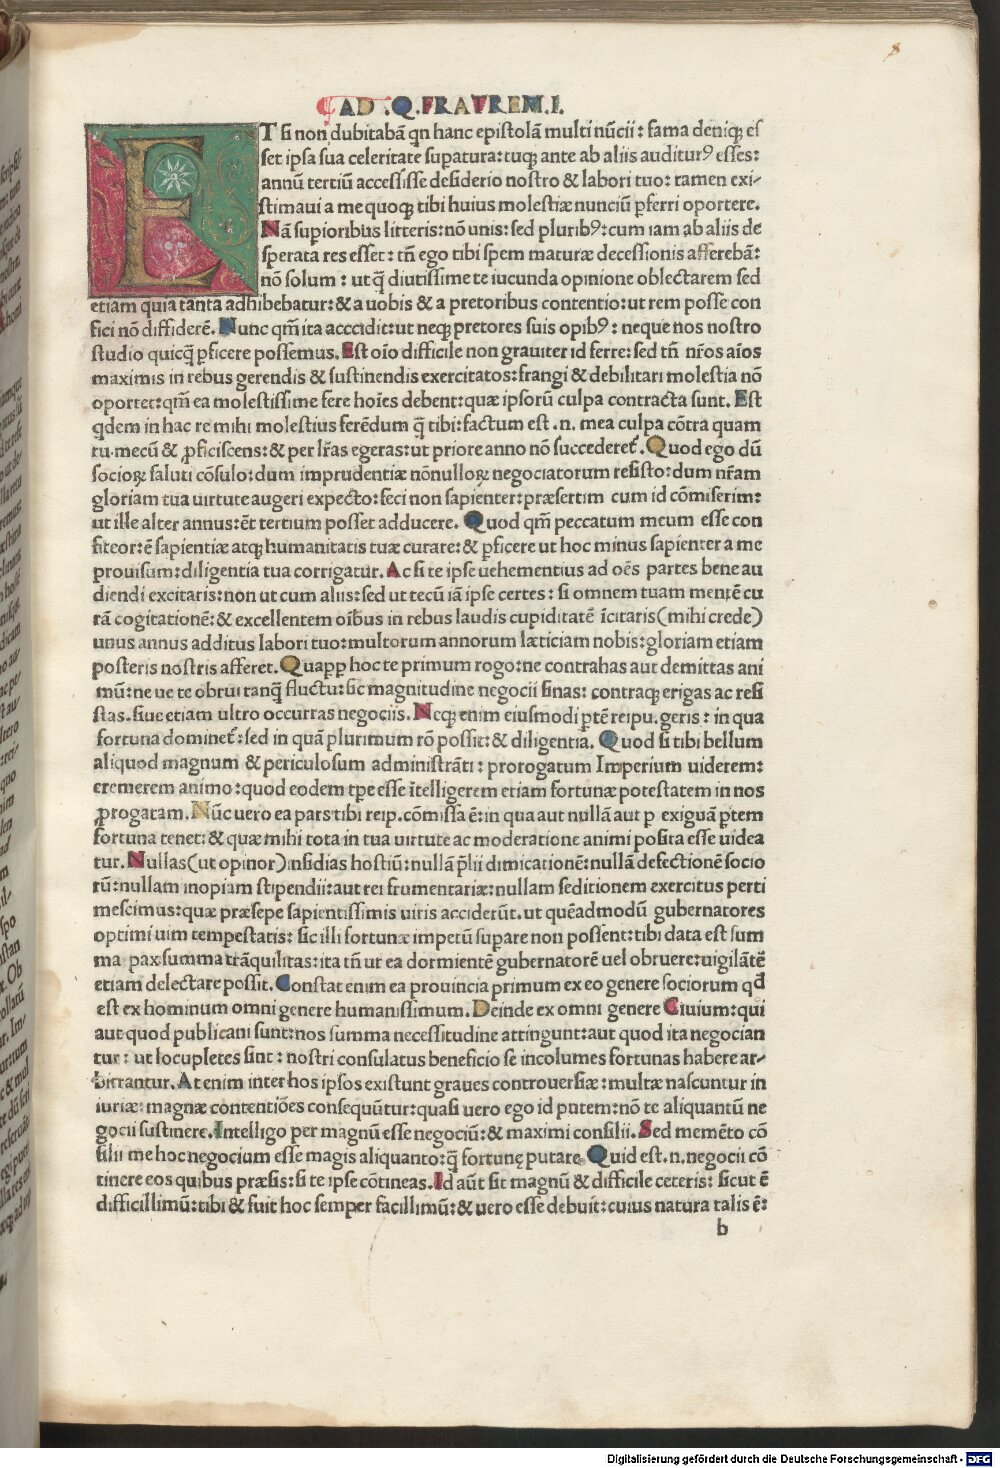 8
¶ AD .Q. FRATREM. I.
ET si non dubitabā qn hanc epistolā multi nūcii: fama deniqꝫ es
set ipsa sua celeritate supatura: tuqꝫ ante ab aliis auditurꝰ esses:
annū tertiū accessisse desiderio nostro & labori tuo: tamen exi-
stimaui a me quoqꝫ tibi huius molestiæ nunciū pferri oportere.
Nā supioribus litteris: nō unis: sed pluribꝰ: cum iam ab aliis de
sperata res esset: tn̄ ego tibi spem maturæ decessionis afferebā:
nō solum: ut q̄ diutissime te iucunda opinione oblectarem sed
etiam quia tanta adhibebatur: & a uobis & a pretoribus contentio: ut rem posse con
fici nō diffiderē. Nunc qm̄ ita accidit: ut neqꝫ pretores suis opibꝰ: neque nos nostro
studio quicq̄ ꝑficere possemus. Est oīo difficile non grauiter id ferre: sed tn̄ nr̄os aīos
maximis in rebus gerendis & sustinendis exercitatos: frangi & debilitari molestia nō
oportet: qm̄ ea molestissime fere hoīes debent: quæ ipsorū culpa contracta sunt. Est
qdem in hac re mihi molestius ferēdum q̄ tibi: factum est .n. mea culpa cōtra quam
tu mecū & ꝓficiscens: & per lr̄as egeras: ut priore anno nō succederet̄. Quod ego dū
socioꝝ saluti cōsulo: dum imprudentiæ nōnulloꝝ negociatorum resisto: dum nr̄am
gloriam tua uirtute augeri expecto: feci non sapienter: præsertim cum id cōmiserim:
ut ille alter annus: ēt tertium posset adducere. Quod qm̄ peccatum meum esse con
fiteor: ē sapientiæ atqꝫ humanitatis tuæ curare: & ꝑficere ut hoc minus sapienter a me
prouisum: diligentia tua corrigatur. Ac si te ipse uehementius ad oēs partes bene au
diendi excitaris: non ut cum aliis: sed ut tecū iā ipse certes: si omnem tuam mentē cu
rā cogitationē: & excellentem oībus in rebus laudis cupiditatē īcitaris (mihi crede)
unus annus additus labori tuo: multorum annorum læticiam nobis: gloriam etiam
posteris nostris afferet. Quapꝑ hoc te primum rogo: ne contrahas aut demittas ani
mū: ne ue te obrui tanq̄ fluctu: sic magnitudine negocii sinas: contraqꝫ erigas ac resi
stas. siue etiam ultro occurras negociis. Neqꝫ enim eiusmodi ptē reipu. geris: in qua
fortuna dominet̄: sed in quā plurimum rō possit: & diligentia. Quod si tibi bellum
aliquod magnum & periculosum administrāti: prorogatum Imperium uiderem:
tremerem animo: quod eodem tpe esse ītelligerem etiam fortunæ potestatem in nos
ꝓrogatam. Nūc uero ea pars tibi reip. cōmissa ē: in qua aut nullā aut p exiguā ꝑtem
fortuna tenet: & quæ mihi tota in tua uirtute ac moderatione animi posita esse uidea
tur. Nullas (ut opinor) insidias hostiū: nullā p̄lii dimicationē: nullā defectionē socio
rū: nullam inopiam stipendii: aut rei frumentariæ: nullam seditionem exercitus perti
mescimus: quæ præsepe sapientissimis uiris acciderūt. ut quēadmodū gubernatores
optimi uim tempestatis: sic illi fortunæ impetū supare non possent: tibi data est sum
ma pax: summa trāquilitas: ita tn̄ ut ea dormientē gubernatorē uel obruere: uigilātē
etiam delectare possit. Constat enim ea prouincia primum ex eo genere sociorum qd̄
est ex hominum omni genere humanissimum. Deinde ex omni genere Ciuium: qui
aut quod publicani sunt: nos summa necessitudine attingunt: aut quod ita negocian
tur: ut locupletes sint: nostri consulatus beneficio se incolumes fortunas habere ar-
bitrantur. At enim inter hos ipsos existunt graues controuersiæ: multæ nascuntur in
iuriæ: magnæ contentiōes consequūtur: quasi uero ego id putem: nō te aliquantū ne
gocii sustinere. Intelligo per magnū esse negociū: & maximi consilii. Sed memēto cō
silii me hoc negocium esse magis aliquanto: q̄ fortunę putare. Quid est .n. negocii cō
tinere eos quibus præsis: si te ipse cōtineas. Id aūt sit magnū & difficile ceteris: sicut ē
difficillimū: tibi & fuit hoc semper facillimū: & uero esse debuit: cuius natura talis ē:
b
Digitalisierung gefördert durch die Deutsche Forschungsgemeinschaft - DFG